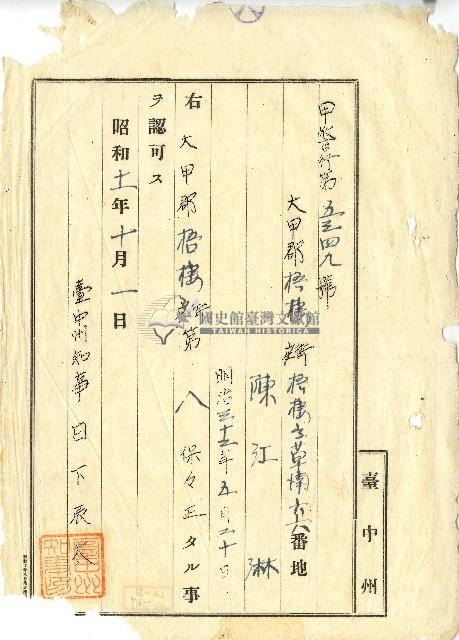 臺中州
甲警行第五三四九號
大甲郡梧棲街梧棲字草湳六六番地
陳江淋
明治三十三年五月二十日
右大甲郡梧棲街第八保々正タル事
ヲ認可ス
昭和十一年十月一日
臺中州知事日下辰太
國史館臺灣文獻館
TAIWAN HISTORICA